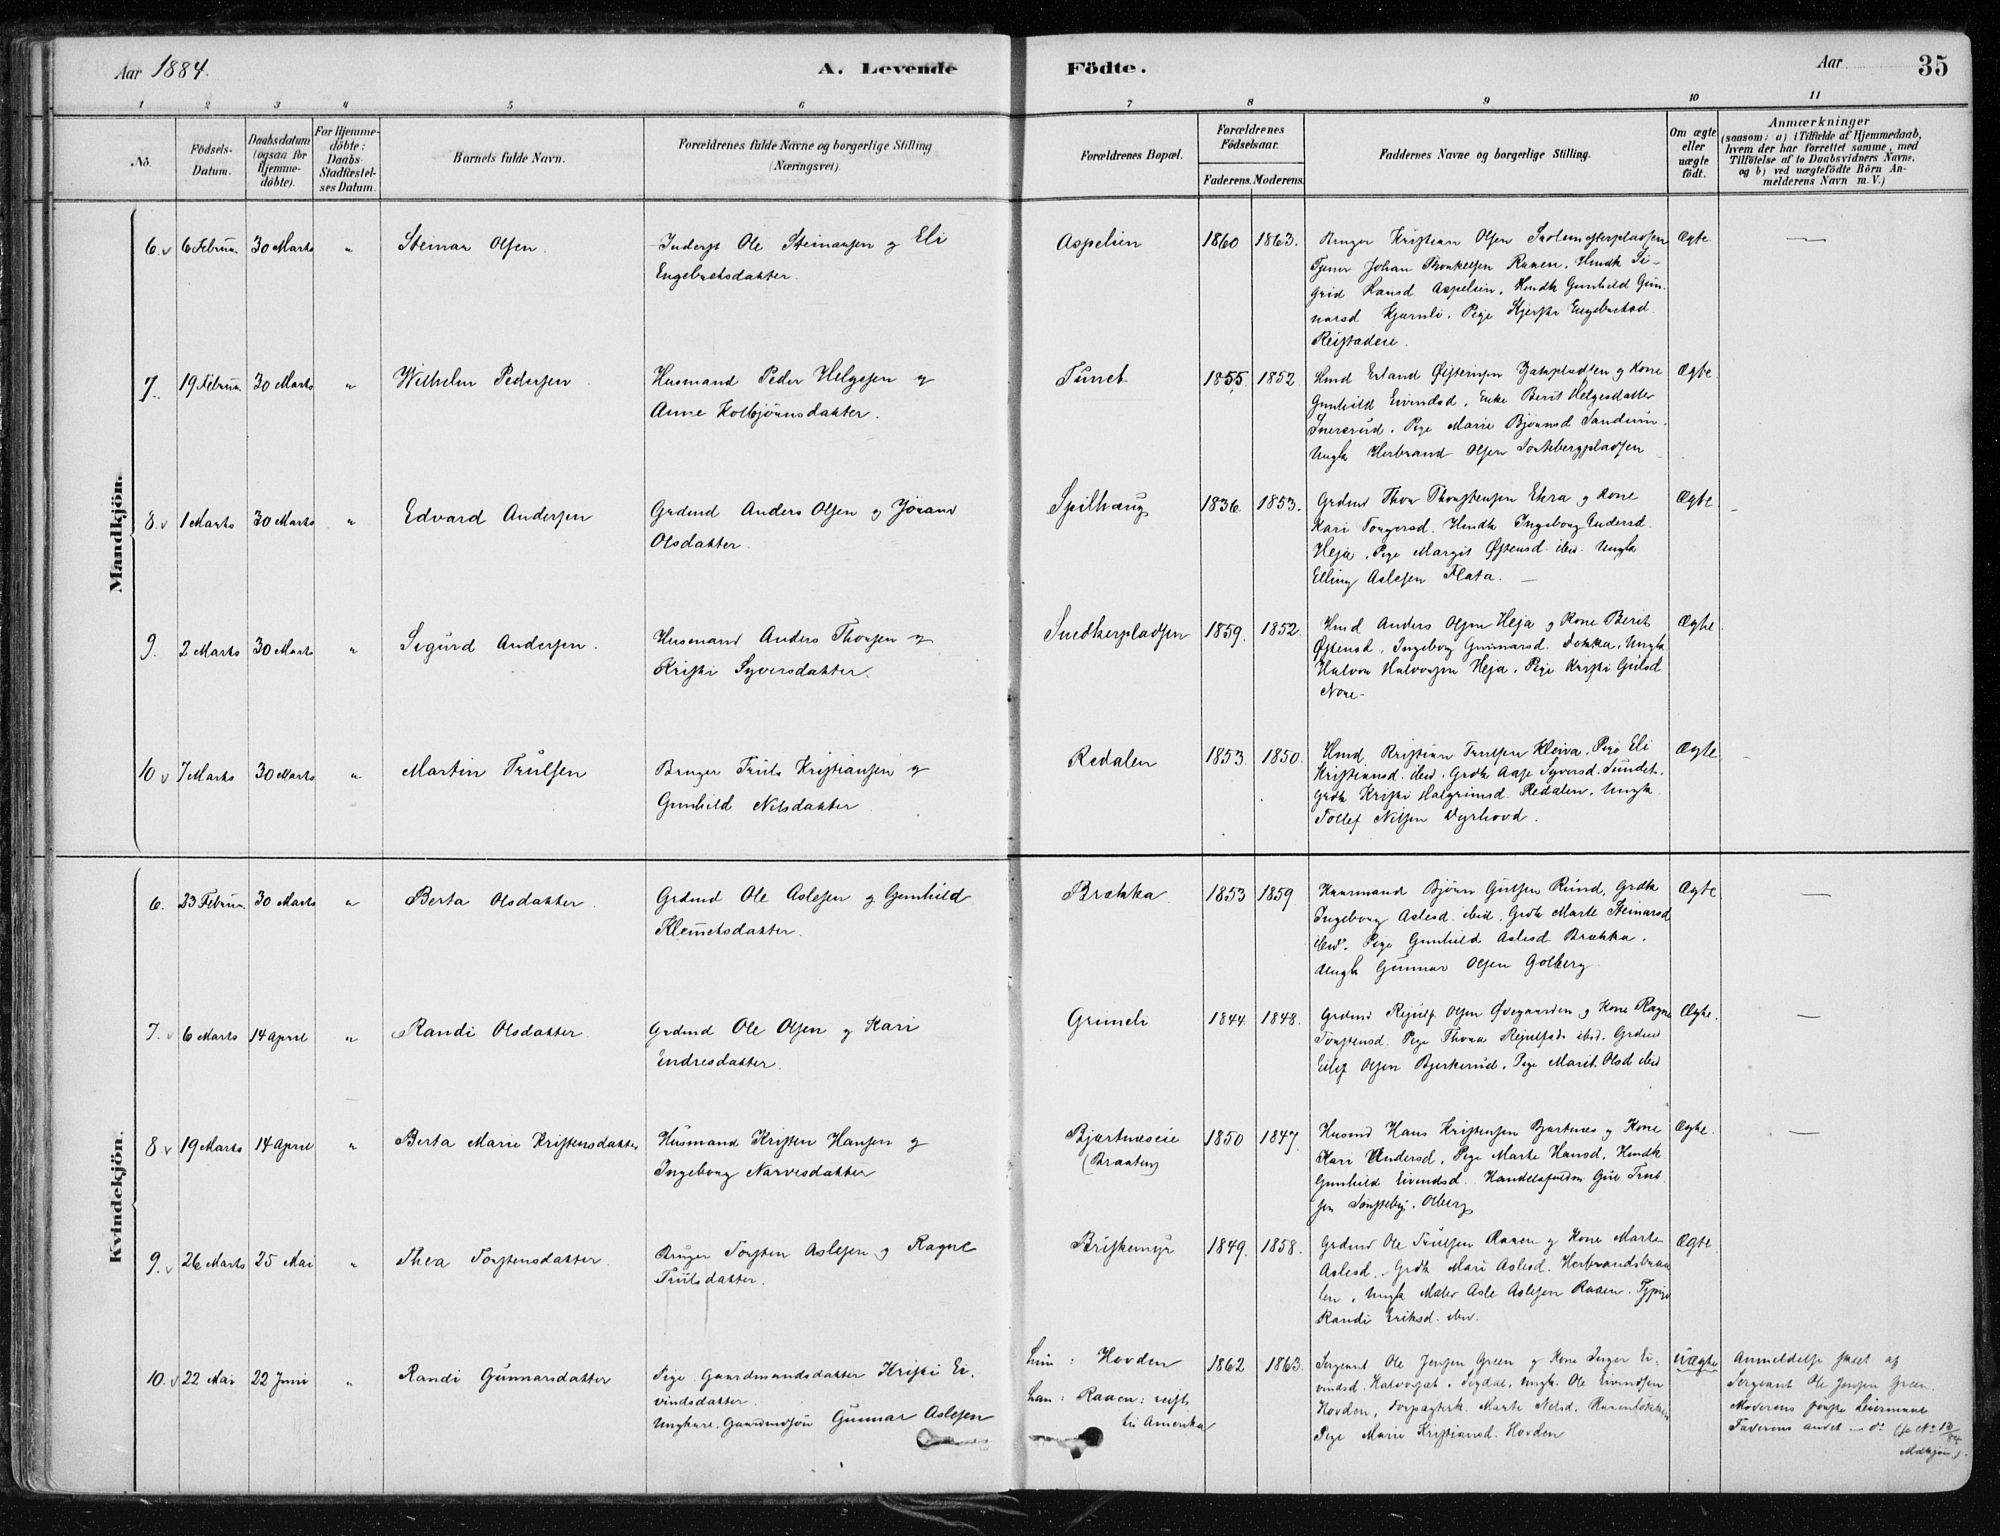 Aar 1884.
A. Levende Födte.
Aar
35
1 2 3 4 5 6 7 8 9 10 11
No.
Födsels-Datum.
Daabsdatum (ogsaa for Hjemme-döbte).
For Hjemme-döbte: Daabs-Stadfæstel-ses Datum.
Barnets fulde Navn.
Forældrenes fulde Navne og borgerlige Stilling (Næringsvei).
Forældrenes Bopæl.
Forældrenes Födselsaar.
Faderens. Moderens.
Faddernes Navne og borgerlige Stilling.
Om ægte eller uægte födt.
Anmærkninger
(saasom: a) i Tilfælde af Hjemmedaab, hvem der har forrettet samme, med Tilföielse af to Daabsvidners Navne, og b) ved uægtefödte Börn An-melderens Navn m. V.)
Mandkjön.
6. 6 Februa 30 Marts " Steinar Olsen.
Inderst Ole Steinarsen og Eli
Engebretsdatter.
Aspelien 1860 1863.
Bruger Kristian Olsen
Tjener Johan Raaen. Hmdk Si-
grid Hansd Aspelien. Hmdk Gunhild Gun-
narsd Kjernli. Pige Engebretsd
Ægte —
7. 19 Februa 30 Marts " Wilhelm Pedersen
Husmand Peder Helgesen og
Anne Kolbjörnsdatter.
Tunet 1855 1852
Hmd Erland og Kone
Gunhild Eivindsd. Enke Berit Helgesdatter
Pige Marie Björnsd
Ungk Herbrand Olsen
Ægte.
8. 1 Marts 30 Marts " Edvard Andersen
Grdmd Anders Olsen og Jöran
Olsdatter.
Spilhaug 1836. 1853.
Grdmd Thor Thorstensen og Kone
Kari Hmdk Ingeborg
Heja. Pige Margit Östensd. ibid. Ungk
Elling Aslesen Flata. —
Ægte.
9. 2 Marts 30 Marts " Sigurd Andersen.
Husmand Anders Thorsen og
Kristi Syversdatter.
Snedkerpladsen 1859. 1852.
Hmd Anders Olsen Heja og Kone Berit
Östensd. Ingeborg Gunnarsd. Ungk
Halvor Halvorsen Heja. Pige Kristi Gulsd
Nore-
Ægte
10 7 Marts 30 Marts " Martin Trulsen
Bruger Truls Kristiansen og
Gunhild Nilsdatter.
Redalen 1853. 1850.
Hmd Kristian Trulsen Kleiva. Pige Eli
Kristiansd. ibid. Grdk Aase Syversd. Sundet.
Grdk Kristi Halgrimsd. Redalen. Ungk
Tollef Nilsen Dyrhovd.
Ægte
Kvindekjön.
6. 23 Februa 30 Marts " Berta Olsdatter.
Grdmd Ole Aslesen og Gunhild
Klemetsdatter.
Brækka 1853 1859.
Björn Gulsen Rund, Grdk
Ingeborg Aslesd ibid. Grdk Marte Steinarsd
ibid. Pige Gunhild Aslesd Brækka.
Ungk Gunnar Olsen Golberg.
Ægte —
7. 6 Marts 14 April " Randi Olsdatter
Grdmd Ole Olsen og Kari
Endresdatter.
Grimeli 1844. 1848.
Grdmd Olsen Övegaarden og Kone Ragne
Torstensd. Pige Thora ibid. Grdmd
Eilef Olsen Bjerkerud. Pige Marit Olsd ibid
Ægte. —
8 19 Marts 14 April " Berta Marie Kristensdatter
Husmand Kristen Hansen og
Ingeborg Narvesdatter
Bjertneseie
(Braaten)
1850 1847.
Husmd Hans Kristensen Bjertnes og Kone
Kari Andersd. Pige Marte Hansd. Hmdk
Gunhild Eivindsd.
Olberg
Ægte. —
9. 26 Marts 25 Mai " Thea Torstensdatter.
Bruger Torsten Aslesen og Ragne
Trulsdatter.
Briskemyr 1849. 1858.
Grdmd Ole Trulsen Raaen og Kone Marte
Aslesd. Grdk Mari Aslesd. Herbrandsbraa-
ten, Ungk Maler Asle Aslesen Raaen. Tjpige
Randi Eriksd. ibid.
Ægte
10. 22 Mai 22 Juni " Randi Gunnarsdatter
Pige Gaardmandsdatter Kristi Ei-
vindsdatter.
Ungkarl Gaardmdsön Gunnar Aslesen
hun: Hovden
han: Raaen: reist
til Amerika
1862 1863.
Sergeant Ole Jensen Green og Kone Inger Ei-
vindsd. Sigdal, Ungk. Ole Eivindsen
Hovden, Marte Nilsd.
Pige Marie Kristiansd. Hovden
Uægte
Anmeldelse skeet af
Sergeant Ole Jensen Green.
Moderens förste Leiermaal
Faderens andet — do (se No 13/84
Mdkjön).